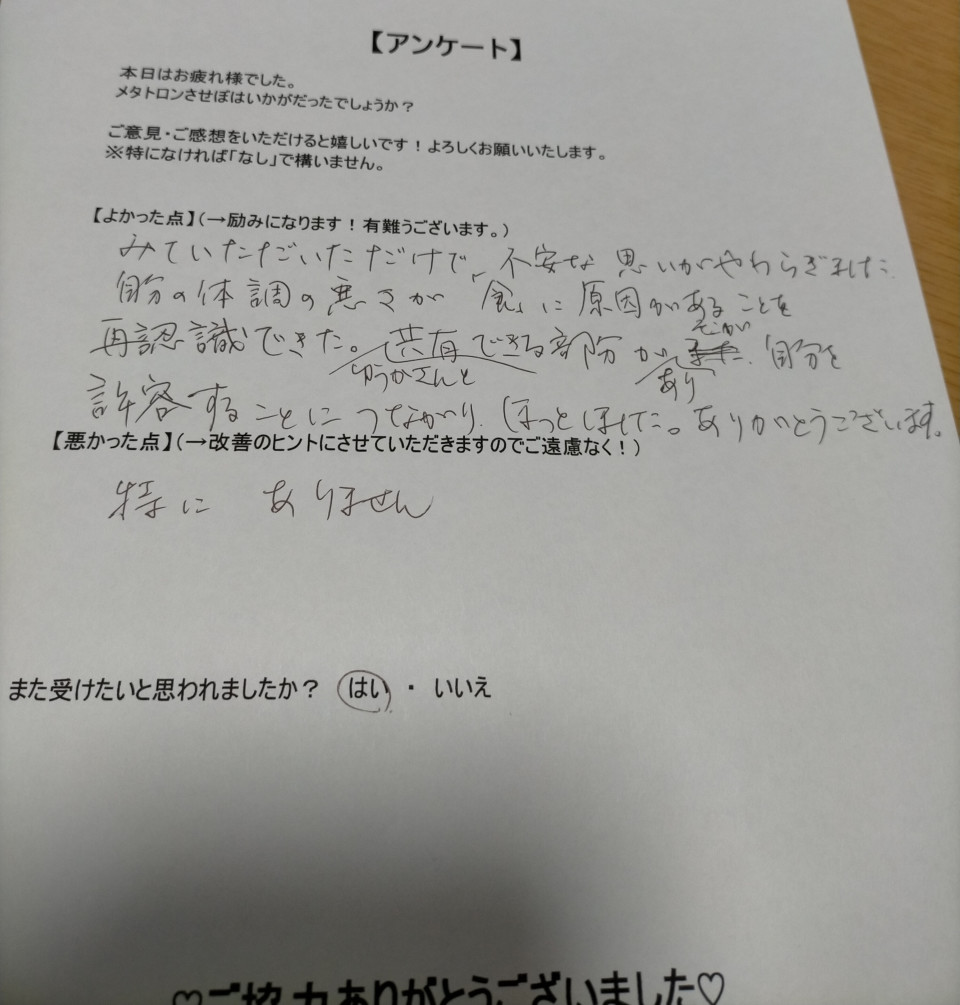 【アンケート】
本日はお疲れ様でした。
メタトロンさせぼはいかがだったでしょうか？
ご意見・ご感想をいただけると嬉しいです！よろしくお願いいたします。
※特になければ「なし」で構いません。
【よかった点】（→励みになります！有難うございます。）
みていただいただけで、不安な思いがやわらぎました。
自分の体調の悪さが「食」に原因があることを
再認識できた。ゆうかさんと共有できる部分がありそれが自分を
許容することにつながり、ほっとしました。ありがとうございます。
【悪かった点】（→改善のヒントにさせていただきますのでご遠慮なく！）
特に ありません
また受けたいと思われましたか？ はい ・ いいえ
♡ご協力ありがとうございました♡